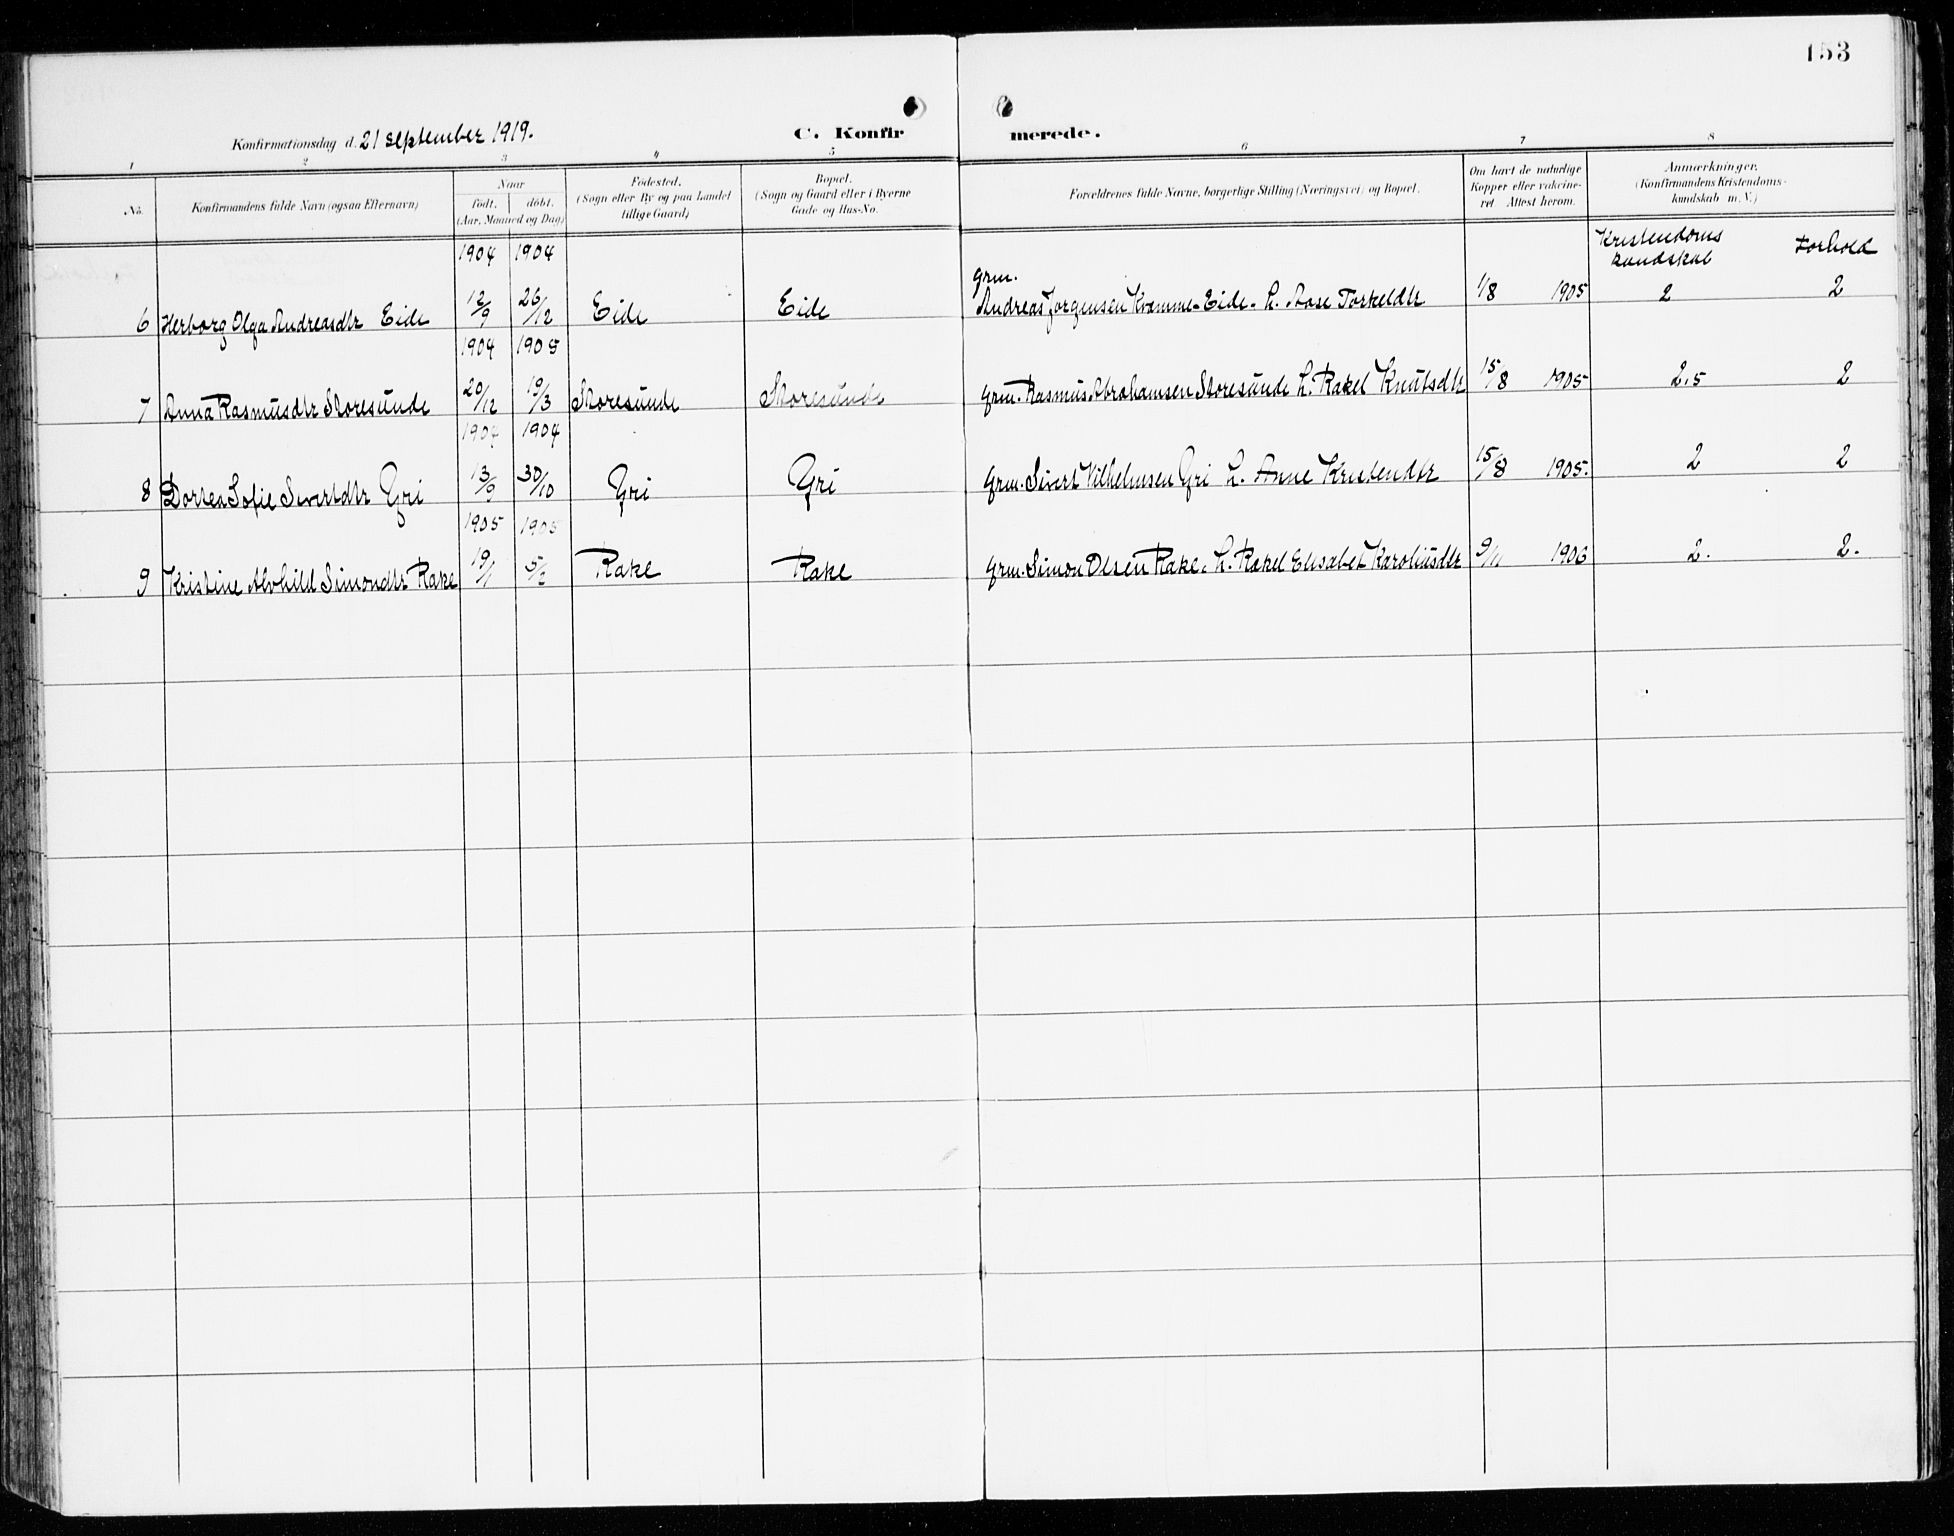 153
Konfirmationsdag d. 21 september 1919.
C. Konfirmerede.
1 2 3 4 5 6 7 8
No. Konfirmandens fulde Navn (ogsaa Efternavn) Naar født. døbt. (Aar, Maaned og Dag) Fødested. (Sogn eller By og paa Landet tillige Gaard) Bopæl. (Sogn og Gaard eller i Byerne Gade og Hus-No. Forældrenes fulde Navne, borgerlige Stilling (Næringsvei) og Bopæl. Om havt de naturlige Kopper eller vakcineret Attest herom. Anmærkninger. (Konfirmandens Kristendomskundskab m. V.)
Kristendoms kundskab Forhold
1904 1904
6 Herborg Olga Andreasdtr Eide 12/9 26/12 Eide Eide Grm. Andreas Jørgensen Kvamme-Eide. h. Aase Torkeldtr 1/8 1905 2 2
1904 1905
7 Anna Rasmusdtr Storesunde 20/12 19/3 Storesunde Storesunde Grm. Rasmus Abrahamsen Storesunde h. Rakel Knutsdtr 15/8 1905 2.5 2
1904 1904
8 Dortea Sofie Sivertdtr Gri 13/9 30/10 Gri Gri Grm. Sivert Vilhelmsen Gri h. Anne Kristendtr 15/8 1905. 2 2
1905 1905
9 Kristine Alvhild Simondtr Rake 19/1 5/2 Rake Rake Grm. Simon Olsen Rake. h. Rakel Elisabet Karoliusdtr 9/11 1906 2. 2.